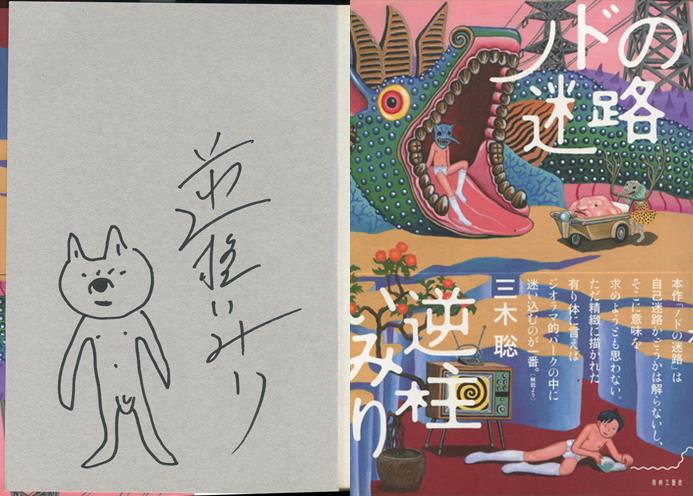 逆柱いみり
ノドの
迷路
本作「ノドの迷路」は
自己迷路かどうかは解らないし、
そこに意味を
求めようとも思わない。
ただ精緻に描かれた
有り体に言えば
ジオラマ的パークの中に
迷い込むのが一番。(解説より)
三木 聡
逆柱
いみり
青林工藝舎